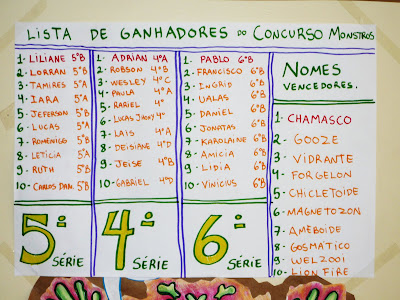 LISTA DE GANHADORES DO CONCURSO MONSTROS
1- LILIANE 5ªB
2- LORRAN 5ªB
3- TAMIRES 5ªA
4- IARA 5ªA
5- JEFERSON 5ªB
6- LUCAS 5ªA
7- ROMENIGO 5ªB
8- LETICIA 5ªA
9- RUTH 5ªB
10- CARLOS DAN. 5ªB
5ª
SÉRIE
1- ADRIAN 4ªA
2- ROBSON 4ªB
3- WESLEY 4ªC
4- PAULA 4ªA
5- RARIEL 4ª
6- LUCAS JHONY 4ª
7- LAÍS 4ªA
8- DEISIANE 4ªD
9- JEISE 4ªB
10- GABRIEL 4ªD
4ª
SÉRIE
1- PABLO 6ªB
2- FRANCISCO 6ªB
3- INGRID 6ªB
4- UALAS 6ªB
5- DANIEL 6ªB
6- JONATAS 6ªB
7- KAROLAINE 6ªB
8- AMICIA 6ªB
9- LIDIA 6ªB
10- VINICIUS 6ªB
6ª
SÉRIE
NOMES
VENCEDORES.
1- CHAMASCO
2- GOOZE
3- VIDRANTE
4- FORGELON
5- CHICLETOIDE
6- MAGNETOZON
7- AMEBÓIDE
8- GOSMÁTICO
9- WEL2001
10- LION FIRE